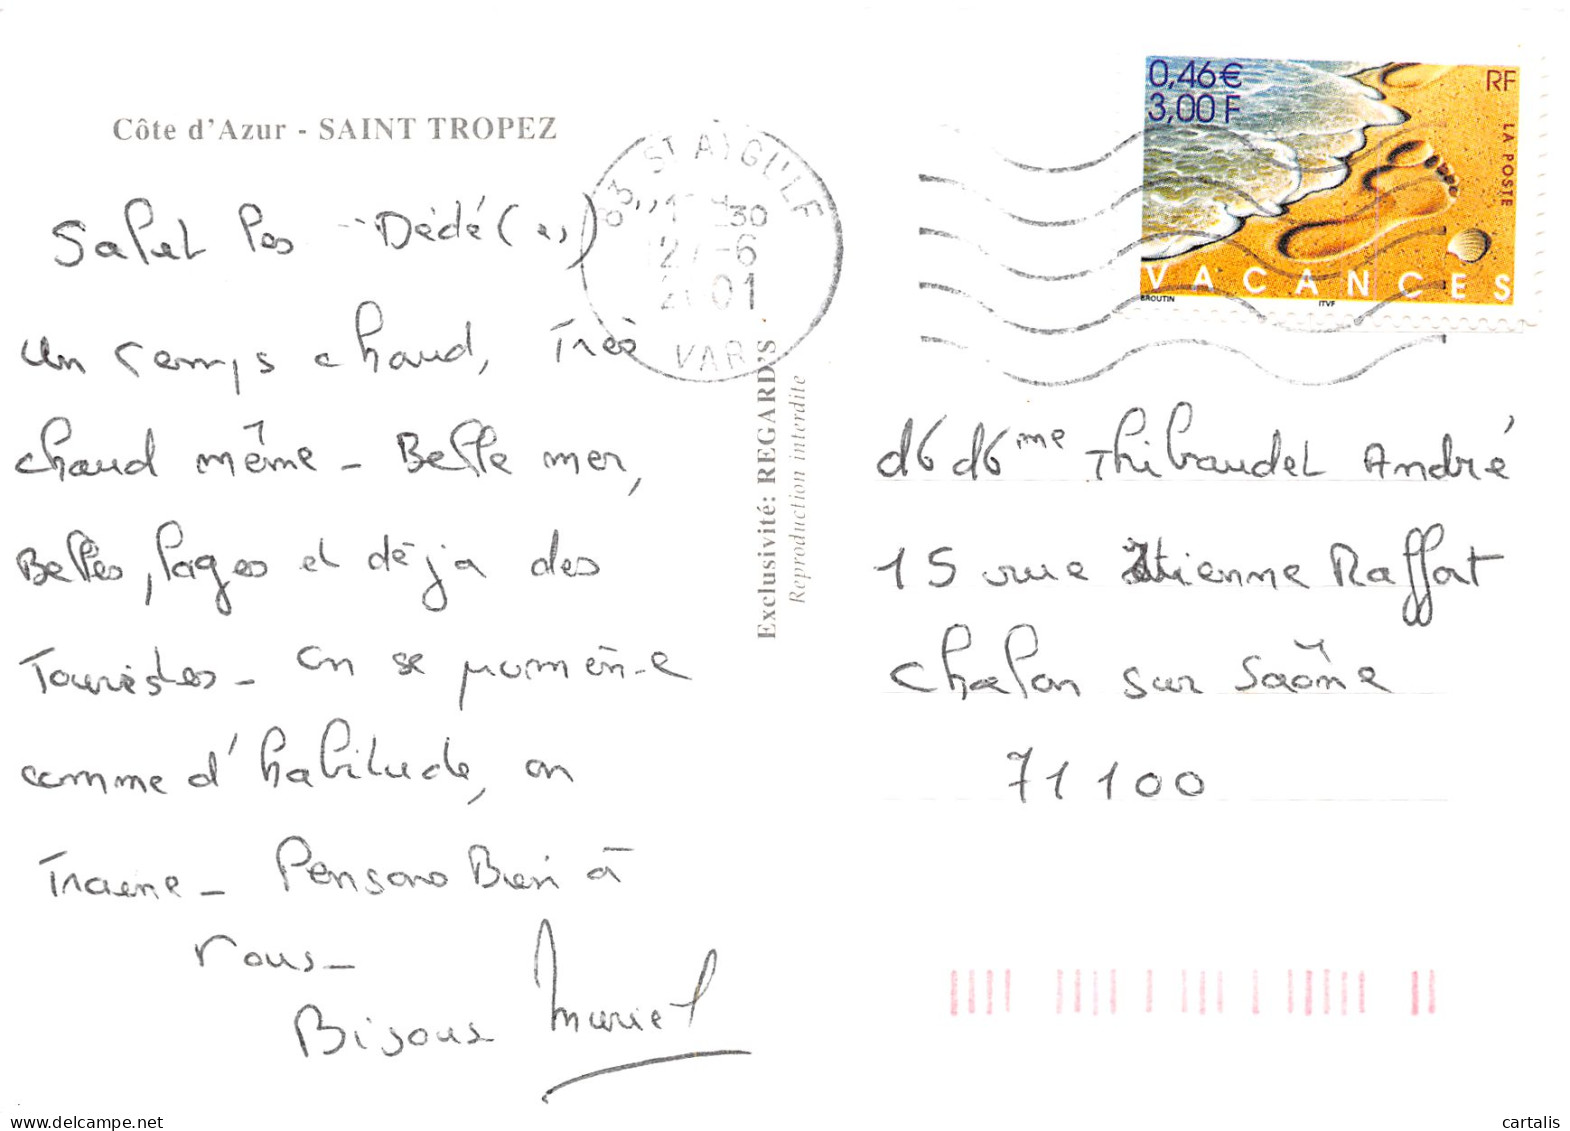 Côte d'Azur - SAINT TROPEZ
Salut les Dédé (es)
un temps chaud, Très
chaud même - Belle mer,
Belles plages et déjà des
Touristes - on se promène
comme d'habitude, on
Traine - Pensons Bien à
vous -
Bisous Muriel
83 ST AYGULF
30
2001
VAR
Exclusivité: REGARD'S
Reproduction interdite
0,46€
3,00 F
RF
LA POSTE
VACANCES
BROUTIN
ITVF
M Mme Thibaudet André
15 rue Etienne Raffort
Chalon sur Saône
71100
cartalis